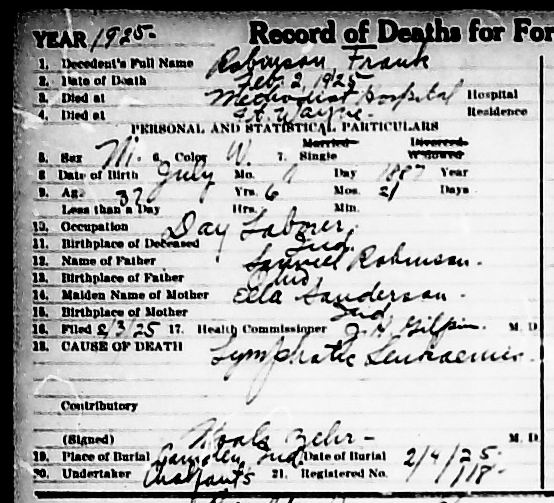 YEAR 1925- Record of Deaths for For
1. Decedent's Full Name Robinson, Frank
2. Date of Death Feb. 2, 1925
3. Died at Methodist Hospital Hospital
4. Died at Ft. Wayne. Residence
PERSONAL AND STATISTICAL PARTICULARS
5. Sex M. 6. Color W. 7. Single Married Divorced Widowed
8 Date of Birth July Mo. 1 Day 1887 Year
9. Age 37 Yrs. 6 Mos. 21 Days
Less than a Day Hrs. Min.
10. Occupation Day Laborer,
11. Birthplace of Deceased Ind.
12. Name of Father Samuel Robinson.
13. Birthplace of Father Ind
14. Maiden Name of Mother Ella Sanderson.
15. Birthplace of Mother Ind
16. Filed 2/3/25 17. Health Commissioner J. H. Gilpin. M. D.
18. CAUSE OF DEATH Lymphatic Leukaemia.
Contributory
(Signed) Zehr- M. D.
19. Place of Burial Camden, Ind. Date of Burial 2/4/25-
20. Undertaker Chalfants 21. Registered No. 118-